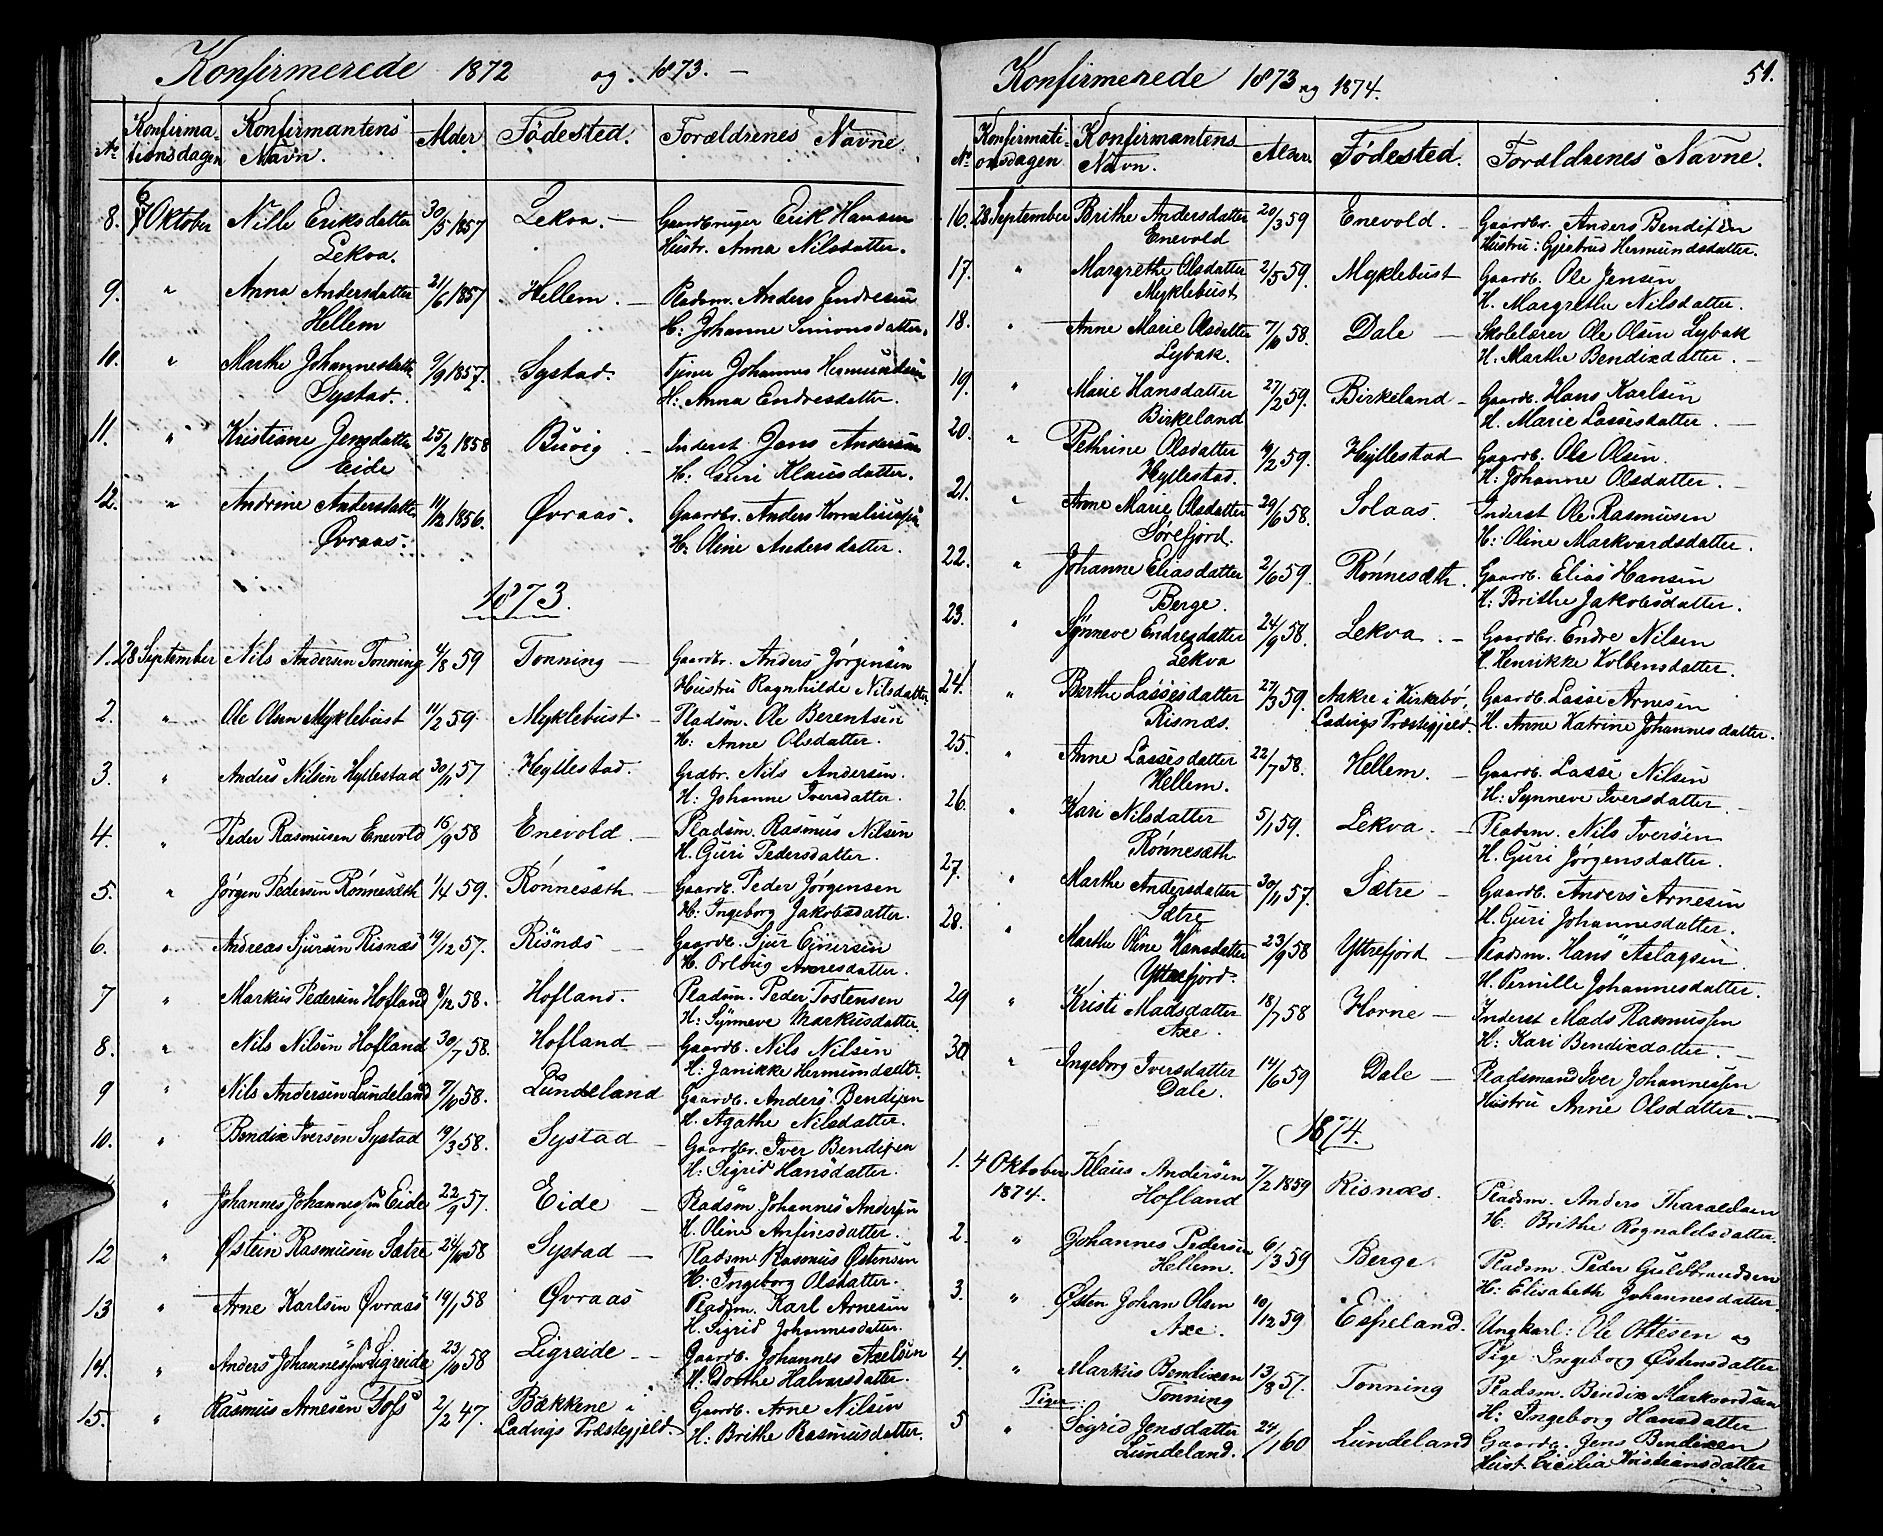 Konfirmerede 1872 og 1873. —
No Konfirmationsdagen Konfirmantens Navn. Alder Fødested. Forældrenes Navne
8. 6 Oktober Nille Eriksdatter 30/5 1857 Lekva. — Gaardbruger Erik Hansen
Lekva. Hustr. Anna Nilsdatter.
9. " Anna Andersdatter 21/6 1857 Hellem. — Pladsm. Anders Endresen
Hellem H: Johanne Simonsdatter.
10. " Marthe Johannesdatt. 9/9 1857. Systad. Tjener Johannes Hermundsen
Systad. H: Anna Endresdatter.
11. " Kristiane Jensdatter 25/2 1858 Buvig — Inderst Jens Andersen
Eide H: Guri Klausdatter.
12. " Andrine Andersdatter 11/12 1856. Øvraas. Gaardbr. Anders Korneliussen
Øvraas. H: Oline Andersdatter.
1873.
1. 28 September Nils Andersen Tonning 4/8 59 Tonning — Gaardbr. Anders Jørgensen
Hustru Ragnhilde Nilsdatter
2. " Ole Olsen Myklebust 11/2 59. Myklebust — Pladsm. Ole Berentsen
H: Anne Olsdatter.
3. " Anders Nilsen Hyllestad 30/11 57 Hyllestad. Grdbr. Nils Andersen.
H: Johanne Iversdatter.
4. " Peder Rasmusen Enevold 16/9 58 Enevold — Pladsm. Rasmus Nilsen
H. Guri Pedersdatter.
5. " Jørgen Pedersen Rönnesæth 1/4 59. Rönnesæth — Gaardb. Peder Jørgensen
H: Ingeborg Jakobsdatter.
6. " Andreas Sjursen Risnæs 19/12 57. Risnæs — Gaardb. Sjur Einersen
H. Ørlaug Arnesdatter.
7 " Markus Pedersen Hofland 8/12 58. Hofland. Pladsm. Peder Tostensen
H: Synneve Markusdatter.
8. " Nils Nilsen Hofland 30/7 58. Hofland — Gaardb. Nils Nilsen
H. Janikke Hermundsdtr.
9 " Nils Andersen Lundeland 7/10 58. Lundeland Gaardb. Anders Bendixen
H. Agathe Nilsdatter.
10. " Bendix Iversen Systad 19/3 58. Systad — Gaardbr. Iver Bendixen
H: Sigrid Hansdatter.
" Johannes Johannessen Eide 22/9 57. Eide — Pladsm Johannes Andersen
H. Oline Anfinsdatter.
12 " Østein Rasmusen Sætre 24/10 58 Systad — Pladsm Rasmus Østensen
H: Ingeborg Olsdatter.
13 " Arne Karlsen Øvraas 19/1 58 Øvraas Pladsm. Karl Arnesen
H. Sigrid Johannesdatter.
14. " Anders Johannessen Ligreide 23/10 58 Ligreide — Gaardb. Johannes Axelsen
H. Dorthe Halvarsdatter.
15. " Rasmus Arnesen Foss 2/2 47. Bækkene i Gaardb. Arne Nilsen
Ladvigs Præstegjeld. H: Brithe Rasmusdatter.
Konfirmerede 1873 og 1874. 51.
No Konfirmationsdagen Konfirmantens Navn. Alder. Fødested. Forældrenes Navne.
16. 28 September Brithe Andersdatter 20/3 59 Enevold. — Gaardbr. Anders Bendixen
Enevold Hustru: Gjertrud Hermundsdatter.
17. " Margrethe Olsdatter 2/5 59. Myklebust Gaardb. Ole Jensen
Myklebust H. Margrethe Nilsdatter.
18. " Anne Marie Olsdatter 7/10 58. Dale — Skolelærer Ole Olsen Lybak
Lybak. H. Marthe Bendixdatter. —
19. " Marie Hansdatter 27/2 59. Birkeland — Gaardb. Hans Karlsen
Birkeland H. Marie Lassesdatter. —
20. " Pethrine Olsdatter 19/2 59. Hyllestad Gaardb. Ole Olsen.
Hyllestad. H: Johanne Olsdatter. —
21. " Anne Marie Olsdatter 29/6 58. Solaas. Inderst Ole Rasmusen
Sørefjord. H: Oline Markvardsdatter.
22. " Johanne Eliasdatter 2/6 59. Rönnesæth. Gaardb. Elias Hansen
Berge. H: Brithe Jakobsdatter.
23. " Synneve Endresdatter 24/9 58. Lekva. — Gaardbr. Endre Nilsen
Lekva H. Henrikke Kolbensdatter.
24. " Berthe Lassesdatter 27/3 59. Aakre i Kirkebø, Gaardb. Lasse Arnesen
Risnæs. Ladvigs Præstegjeld. H. Anne Katrine Johannesdatter.
25. " Anne Lassesdatter 22/7 58. Hellem. — Gaardb. Lasse Nilsen
Hellem. H: Synneve Iversdatter —
26. " Kari Nilsdatter 5/1 59. Lekva. — Pladsm. Nils Iversen
Rönnesæth H. Guri Jørgensdatter.
27. " Marthe Andersdatter 30/11 57. Sætre — Gaardb. Anders Arnesen
Sætre H. Guri Johannesdatter.
28. " Marthe Oline Hansdatter 23/9 58 Yttrefjord — Pladsm. Hans Aslagsen
Yttrefjord. H. Pernille Johannesdatter.
29 " Kristi Madsdatter 18/7 58 Horne — Inderst Mads Rasmussen
Axe. H: Kari Bendixdatter. —
30. " Ingeborg Iversdatter 14/6 59 Dale — Pladsmand Iver Johannessen
Dale. Hustru Anne Olsdatter. —
1874.
1. 4 Oktober Klaus Andersen 7/2 1859 Risnæs. Pladsm. Anders Tharaldsen
1874. Hofland H. Brithe Rognaldsdatter.
2. " Johannes Pedersen 6/3 59 Berge. Pladsm. Peder Guldbrandsen
Hellem. H: Elisabeth Johannesdatter.
3. " Østen Johan Olsen 10/12 59 Espeland. Ungkarl: Ole Ottesen og
Axe. Pige Ingeborg Østensdatter
4. " Markus Bendixen 13/8 57. Tonning Pladsm. Bendix Markvardsen
Tonning H: Ingeborg Hansdatter
Piger.
5 " Sigrid Jensdatter 24/1 60 Lundeland Gaardb. Jens Bendixen
Lundeland. Hust. Cicilia Kristiansdatter